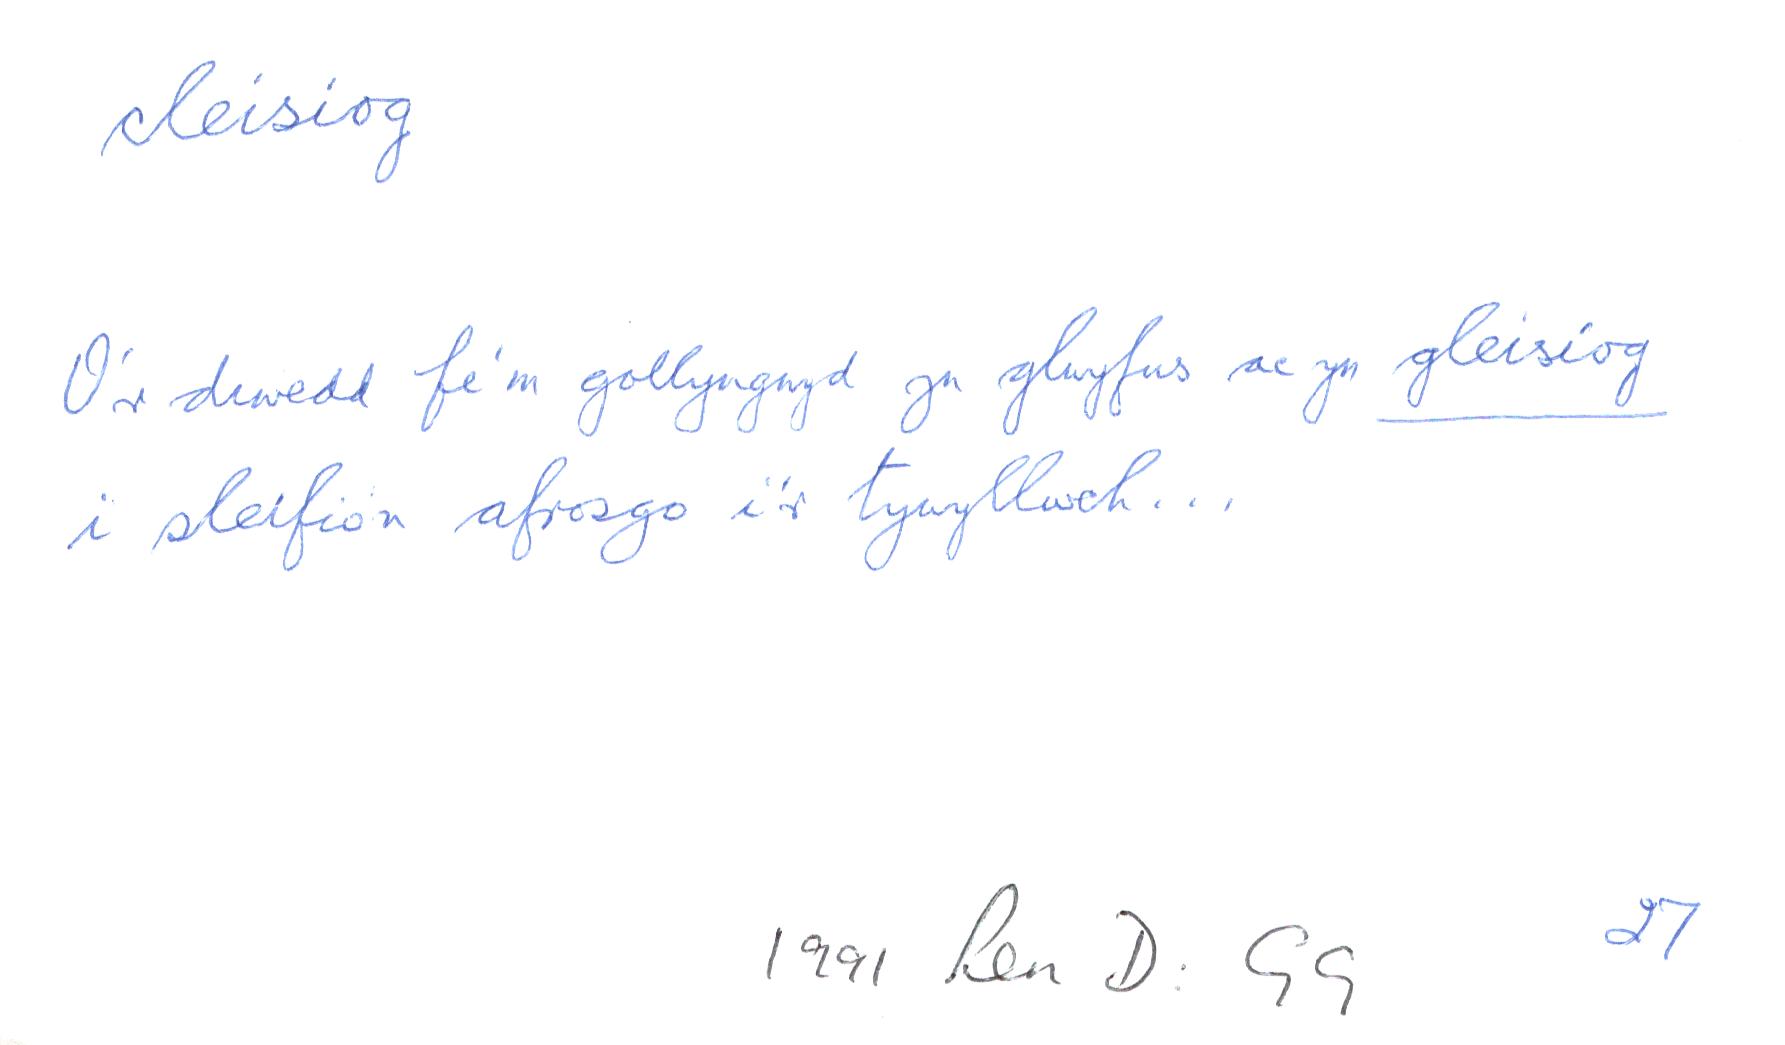 cleisiog
O'r diwedd fe'm gollyngwyd yn glwyfus ac yn gleisiog
i sleifio'n afrosgo i'r tywyllwch...
1991 Len D: GG
27